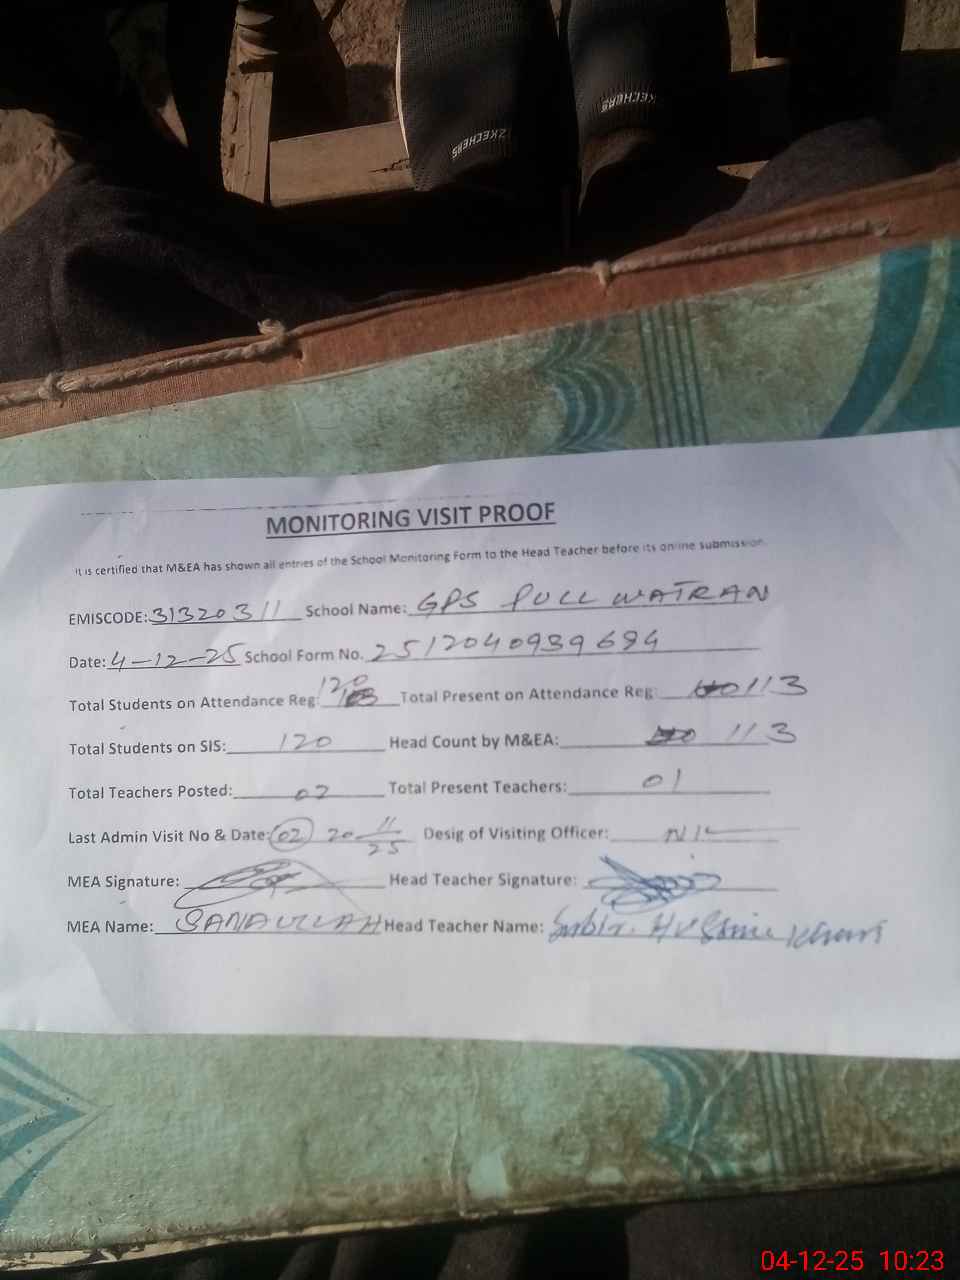 SKECHERS
SKECHERS
MONITORING VISIT PROOF
It is certified that M&EA has shown all entries of the School Monitoring Form to the Head Teacher before its online submission.
EMISCODE: 31320311 School Name: GPS PULL WATRAN
Date: 4-12-25 School Form No. 2512040939694
Total Students on Attendance Reg: 120 Total Present on Attendance Reg: 113
Total Students on SIS: 120 Head Count by M&EA: 113
Total Teachers Posted: 02 Total Present Teachers: 01
Last Admin Visit No & Date: 02 20 11/25 Desig of Visiting Officer: NIL
MEA Signature: Head Teacher Signature:
MEA Name: SANAULLAH Head Teacher Name: Khan
04-12-25 10:23